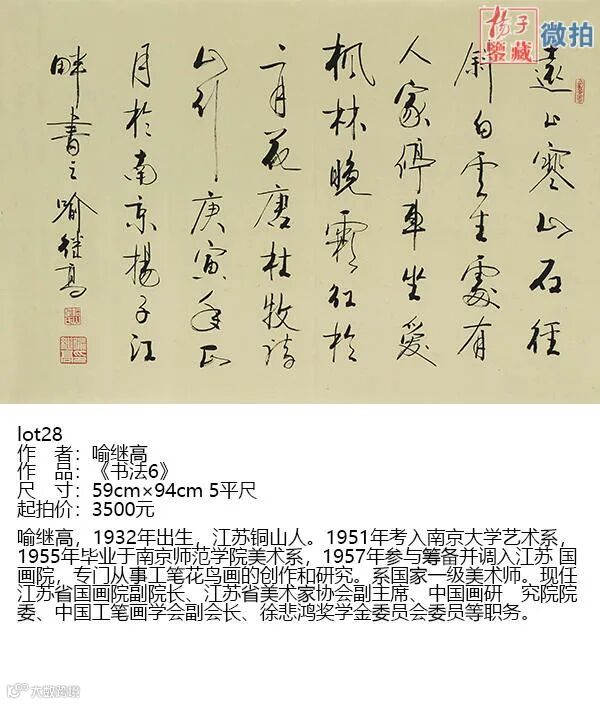 揚子
鑒藏
微拍
遠上寒山石徑
斜白雲生處有
人家停車坐愛
楓林晚霜紅於
二月花唐杜牧詩
山行庚寅年正
月於南京楊子江
畔書之喻继高
lot28
作 者：喻继高
作 品：《书法6》
尺 寸：59cm×94cm 5平尺
起拍价：3500元
喻继高，1932年出生，江苏铜山人。1951年考入南京大学艺术系，
1955年毕业于南京师范学院美术系，1957年参与筹备并调入江苏 国
画院，专门从事工笔花鸟画的创作和研究。系国家一级美术师。现任
江苏省国画院副院长、江苏省美术家协会副主席、中国画研 究院院
委、中国工笔画学会副会长、徐悲鸿奖学金委员会委员等职务。
大数跨境